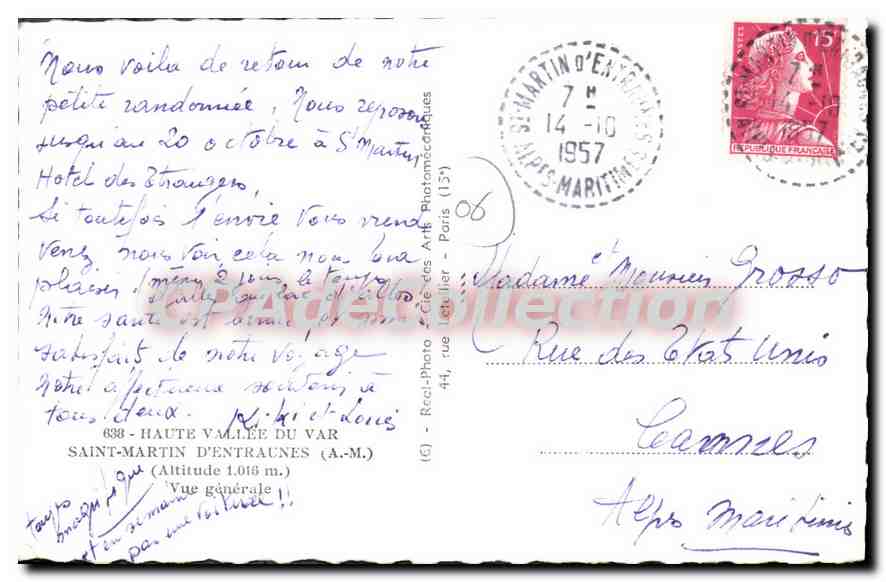 Nous voila de retour de notre
petite randonnée, Nous reposons
jusqu'au 20 octobre à St Martin
Hotel des Etrangers,
Si toutefois l'envie vous vient
venez nous voir cela nous fera
plaisir, même 2 jours le temps
Notre santé est
satisfait de notre voyage
Notre affectueux souvenir à
tous deux. Kiki et Louis
638 - HAUTE VALLÉE DU VAR
SAINT-MARTIN D'ENTRAUNES (A.-M.)
(Altitude 1.016 m.)
Vue générale
temps
magnifique
et en semaine
pas une voiture!!
(6) - Réel-Photo - Cie des Arts Photomécaniques
44, rue Letellier - Paris (15e)
CPA de Collection
ST MARTIN D'ENTRAUNES
7 H
14 -10
1957
ALPES-MARITIMES
POSTES
15F
REPUBLIQUE FRANÇAISE
06
Madame et Monsieur Grosso
Rue des Etats Unis
Cannes
Alpes Maritimes